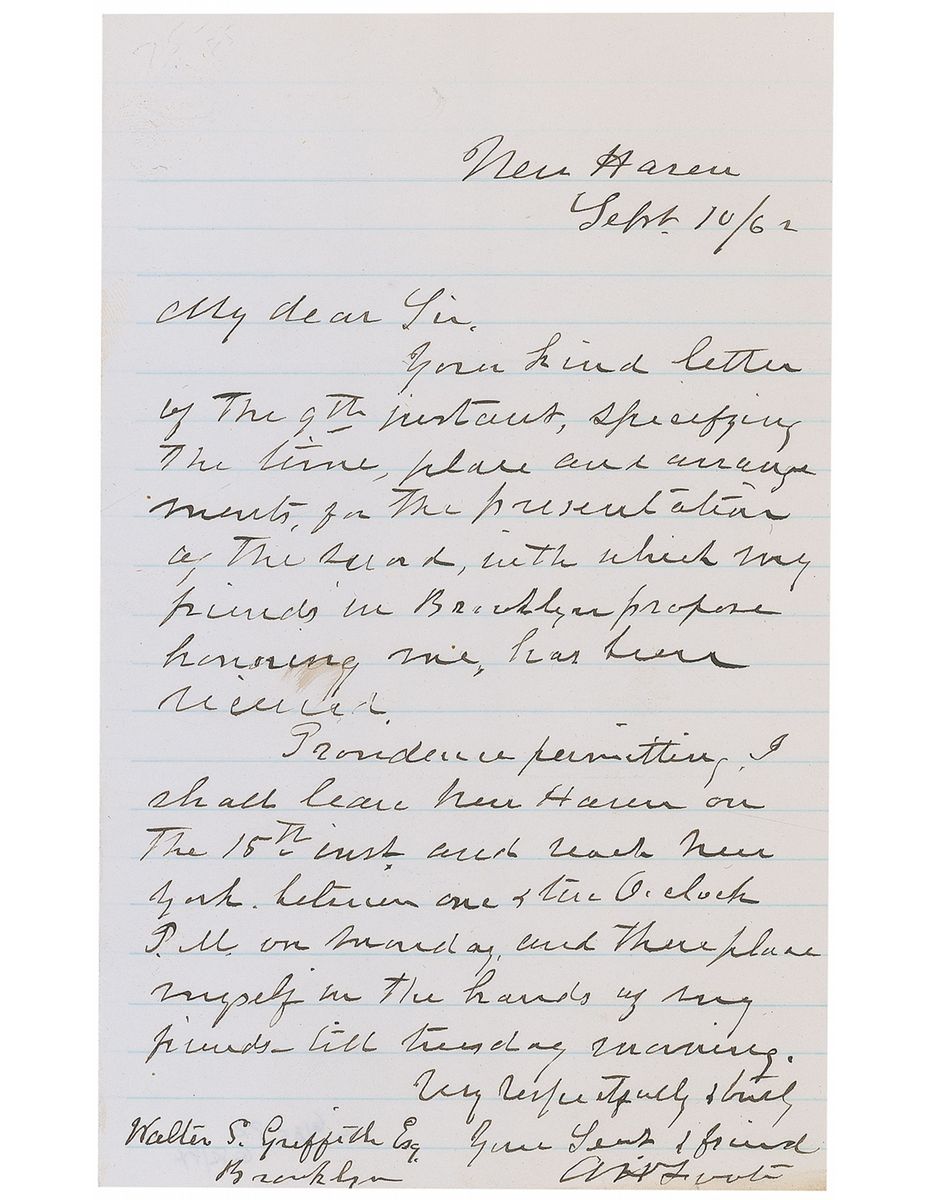 New Haven
Sept. 10/62
My dear Sir.
Your kind letter
of the 9th instant, specifying
the time, place and arrange
ments, for the presentation
of the sword, with which my
friends in Brooklyn propose
honoring me, has been
received.
Providence permitting, I
shall leave New Haven on
the 15th inst. and reach New
York. between one & two O. clock
P.M. on Monday, and there place
myself in the hands of my
friends till tuesday morning.
Very respectfully & truly
Walter S. Griffith Esq. Your Servt & friend
Brooklyn AH Foote